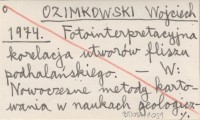 OZIMKOWSKI Wojciech
1974. Fotointerpretacyjna
korelacja utworów fliszu
podhalańskiego. — W:
Nowoczesne metody karto-
wania w naukach geologicz-